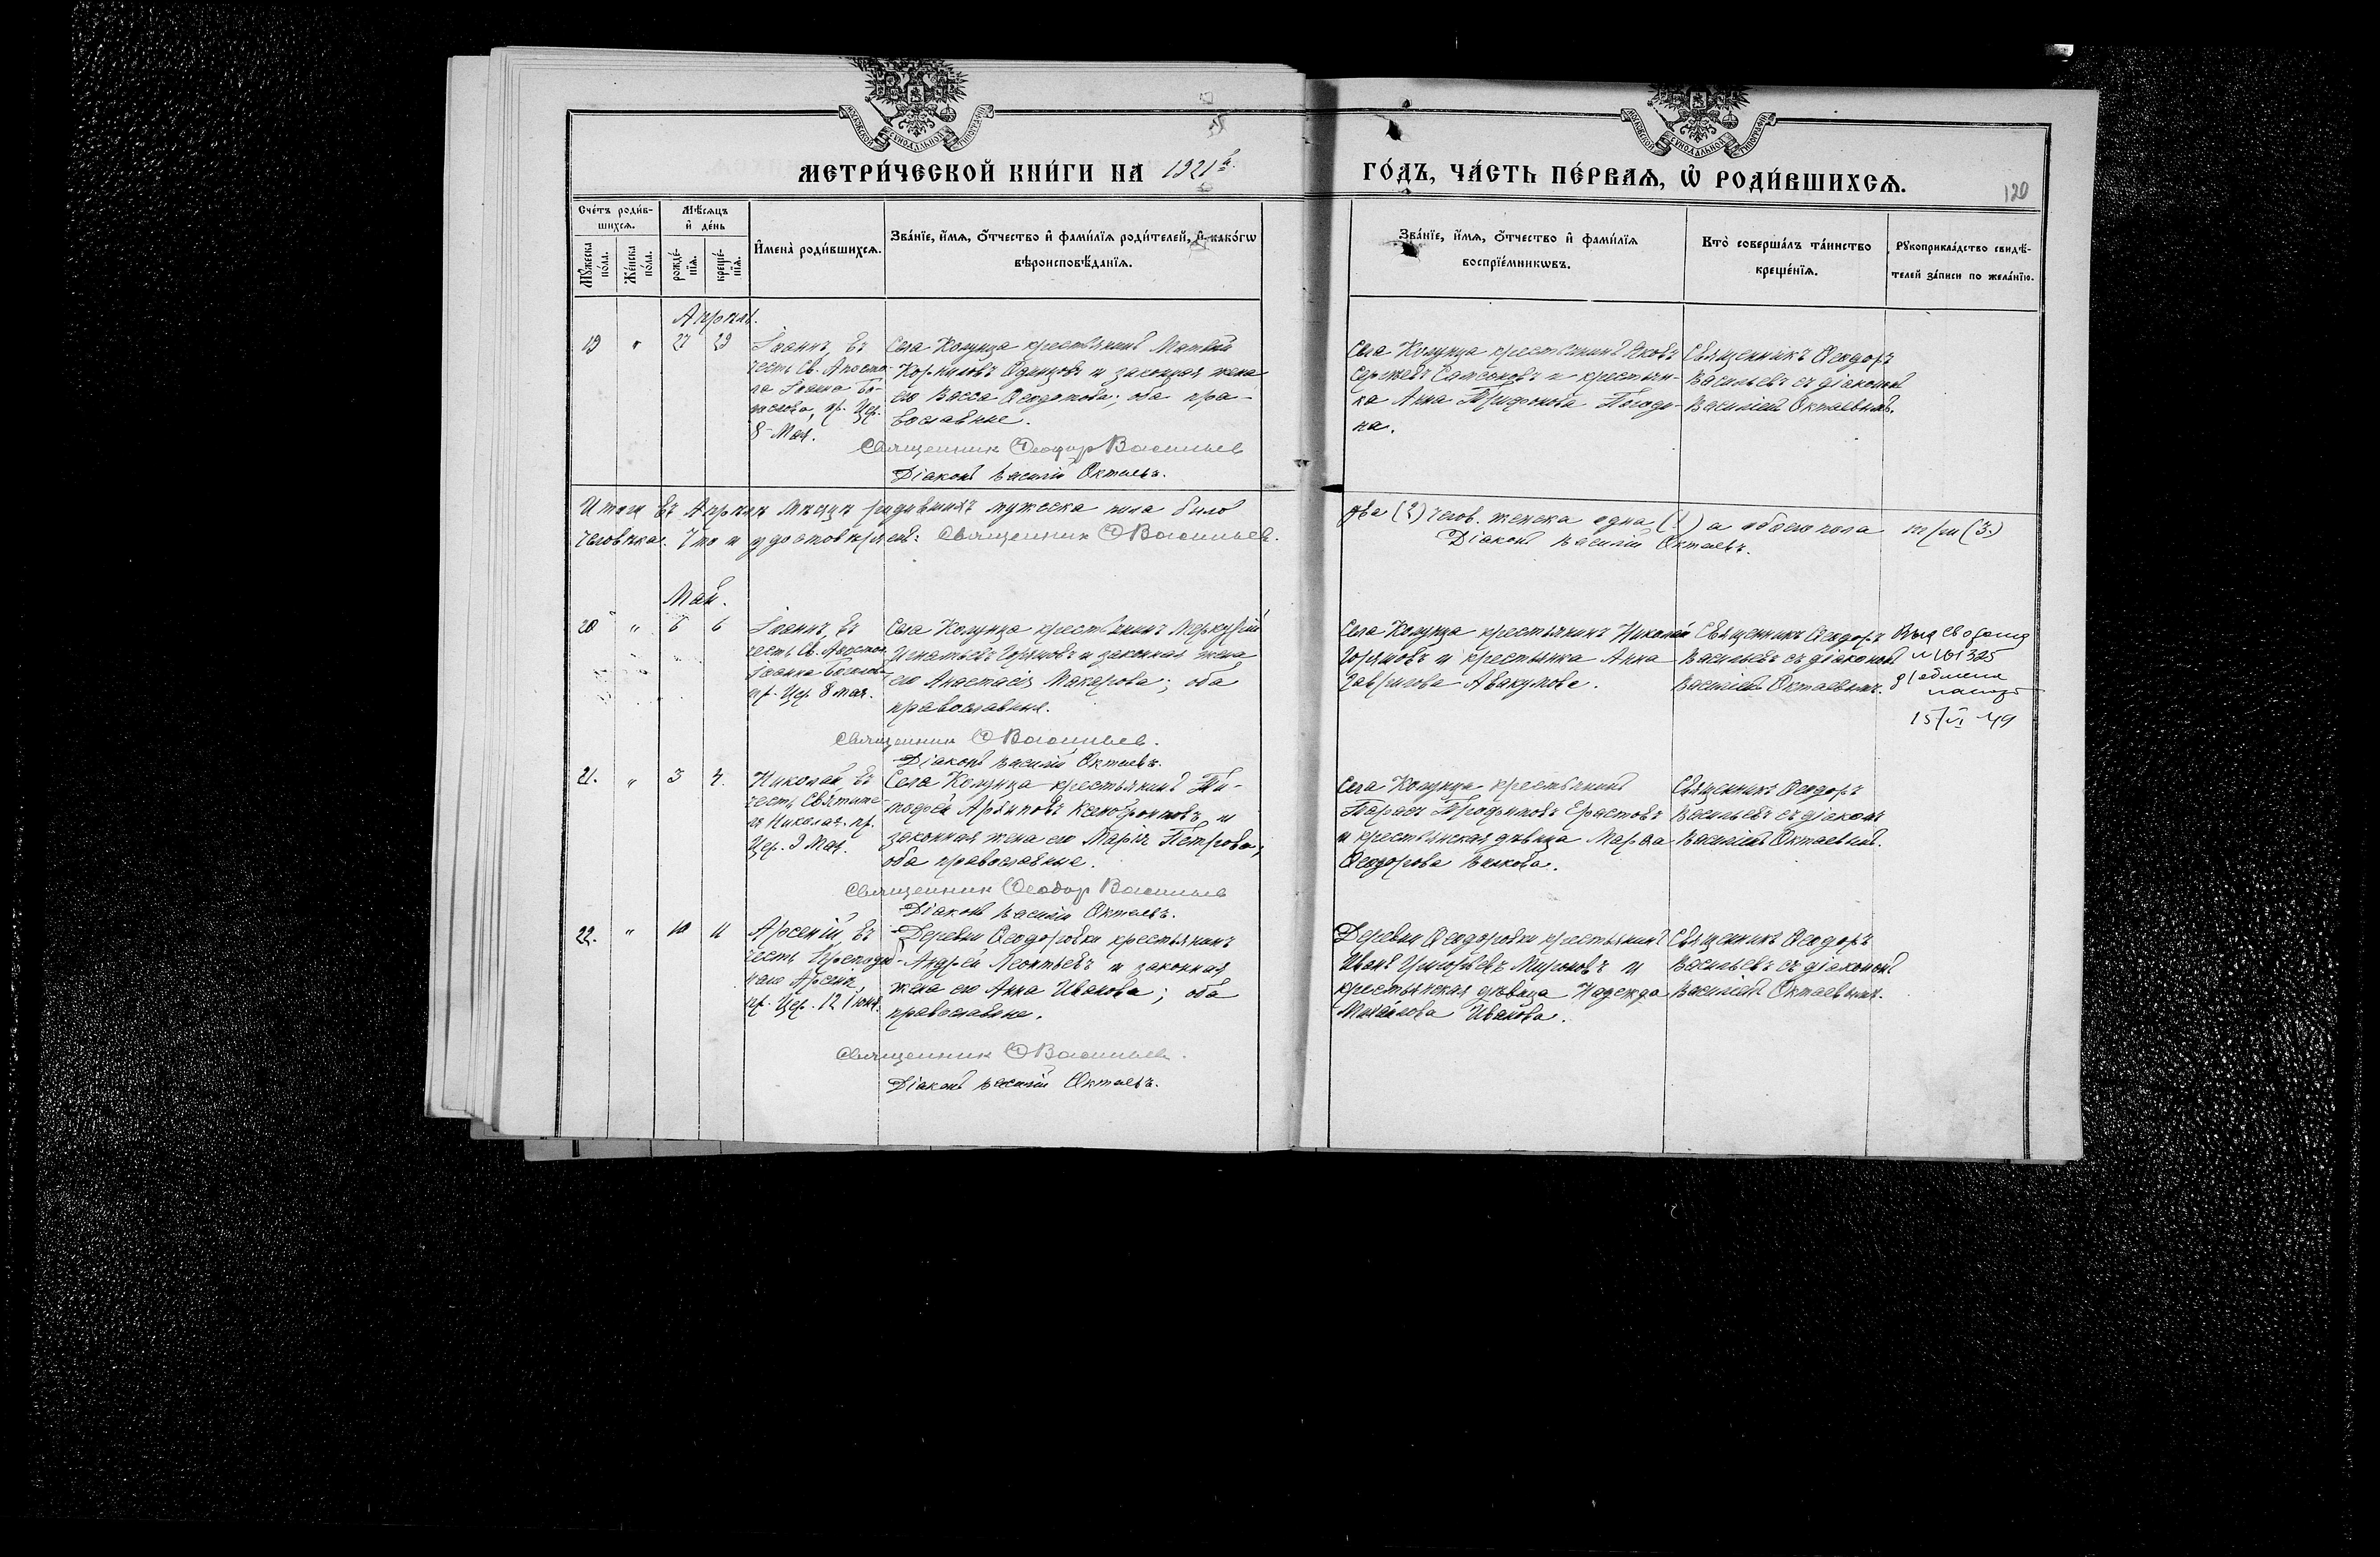 МЕТРИ́ЧЕСКОЙ КНИ́ГИ НА 1921й
ГО́ДЪ, ЧА́СТЬ ПЕ́РВАЯ, Ѽ РОДИ́ВШИХСЯ.
120
Сче́тъ роди́в-
шихся.
Мѣ́сяцъ
и҆ де́нь
Мꙋ́жеска
по́ла.
Же́нска
по́ла.
рожде́-
нїя.
креще́-
нїя.
И҆мена̀ роди́вшихся.
Зва́нїе, и҆́мя, ѻ҆́тчество и҆ фами́лїя роди́телей, и҆ како́гѡ
вѣроисповѣ́данїя.
Зва́нїе, и҆́мя, ѻ҆́тчество и҆ фами́лїя
воспрїе́мникѡвъ.
Кто̀ соверша́лъ та́инство
креще́нїя.
Рꙋкоприкла́дство свидѣ́-
телей за́писи по жела́нїю.
Апрѣль.
19 " 27 29
Іоаннъ, въ
честь Св. Апосто-
ла Іоанна Бо-
гослова, пр. Цер.
8 Мая.
Села Колунца крестьянинъ Матвей
Корниловъ Одинцовъ и законная жена
его Васса Ѳеодотова; оба пра-
вославные.
Священник Ѳеодор Васильев
Діаконъ Василій Октаевъ.
Села Колунца крестьянинъ Яковъ
Сергеевъ Самсоновъ и крестьян-
ка Анна Трифонова Погоди-
на.
Священникъ Ѳеодоръ
Васильевъ съ діакономъ
Василіемъ Октаевымъ.
Итого въ Апрѣлѣ мѣсяцѣ родившихъ мужеска пола было
два (2) челов. женска одна (1) а обоего пола три (3)
человѣка. Что и удостовѣряемъ: Священник Ѳ Васильев.
Діаконъ Василій Октаевъ.
Май.
20 " 6 6
Іоаннъ, въ
честь Св. Апостола
Іоанна Богослова
пр. Цер. 8 мая.
Села Колунца крестьянинъ Меркурій
Игнатьевъ Горшковъ и законная жена
его Анастасія Макарова; оба
православныя.
Священник Ѳ Васильев.
Діаконъ Василій Октаевъ.
Села Колунца крестьянинъ Николай
Горшковъ и крестьянка Анна
Гаврилова Авакумова.
Священникъ Ѳеодоръ
Васильевъ съ діакономъ
Василіемъ Октаевымъ.
№ 161325
15/VI 49
21. " 3 4.
Николай, въ
честь Святите-
ля Николая. пр.
Цер. 9 Мая.
Села Колунца крестьянинъ Ти-
мофей Архиповъ Ксенофонтовъ и
законная жена его Марія Петрова;
оба православные.
Священник Ѳеодор Васильев
Діаконъ Василій Октаевъ.
Села Колунца крестьянинъ
Тарасъ Трофимовъ Ерастовъ
и крестьянская дѣвица Марѳа
Ѳеодорова Вилкова.
Священникъ Ѳеодоръ
Васильевъ съ діаконъ
Василіемъ Октаевымъ.
22. " 10 11
Арсеній въ
честь Преподоб-
наго Арсенія,
пр. Цер. 12 Іюня.
Деревни Ѳеодоровки крестьянинъ
Андрей Леонтьевъ и законная
жена его Анна Иванова; оба
православные.
Священник Ѳ Васильев.
Діаконъ Василій Октаевъ.
Деревни Ѳеодоровки крестьянинъ
Иванъ Григорьевъ Мироновъ и
крестьянская дѣвица Надежда
Михайлова Иванова.
Священникъ Ѳеодоръ
Васильевъ съ діакономъ
Василіемъ Октаевымъ.